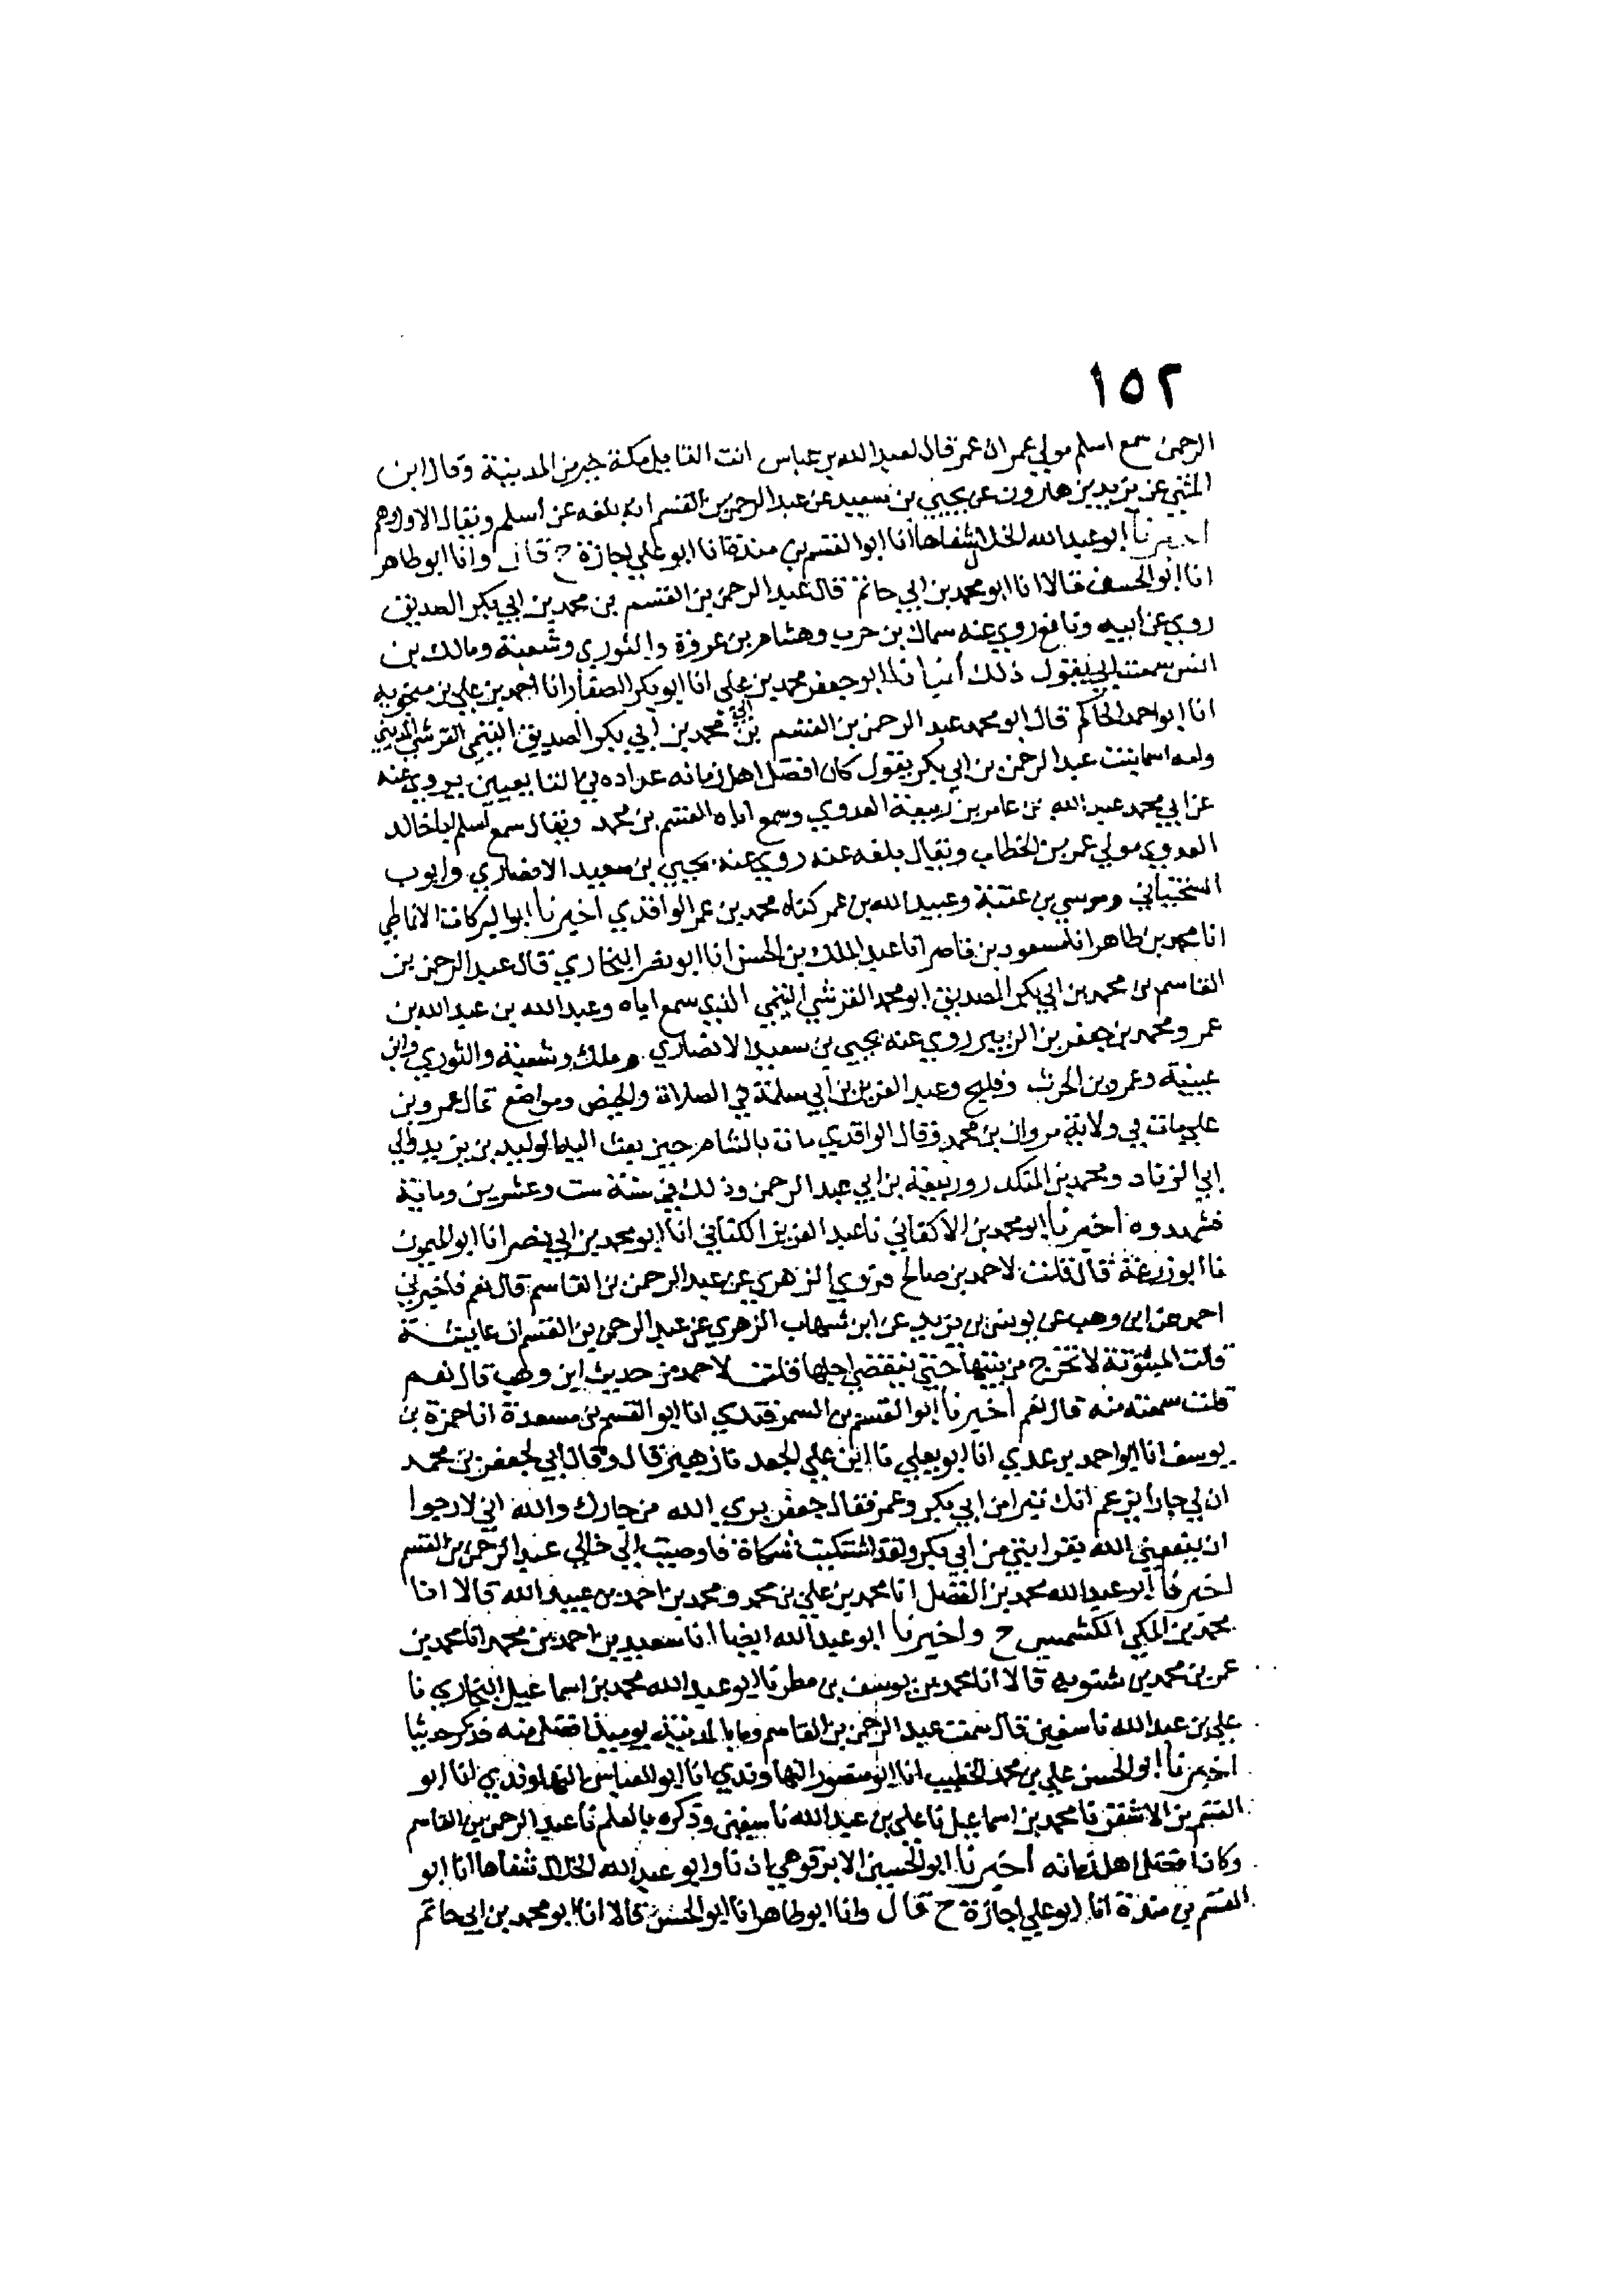 ١٥٢
الرحمن سمع اسلم مولي عمر ان عمر قال لعبد الله بن عباس انت القايل مكة خير من المدينة وقال ابن
المثني عن يزيد بن هارون عن يحيي بن سعيد عن عبد الرحمن بن القسم انه بلغه عن أسلم ويقال الاول وهم
اخبرنا ابو عبد الله الخلال شفاها أنا ابوا القسم بن مندة انا ابو علي اجازة ح قال وانا ابو طاهر
انا ابو الحسن قالا انا ابو محمد بن ابي حاتم قال عبد الرحمن بن القسم بن محمد بن ابي بكر الصديق
روي عن ابيه ونافع روي عنه سماك بن حرب وهشام بن عروة والثوري وشعبة ومالك بن
انس سمعت ابي يقول ذلك أنبأنا ابو جعفر محمد بن علي انا ابو بكر الصفار انا احمد بن علي بن منجويه
انا ابو احمد الحاكم قال ابو محمد عبد الرحمن بن القسم بن محمد بن أبي بكر الصديق التيمي القرشي المديني
وامه اسما بنت عبد الرحمن بن ابي بكر يقول كان افضل اهل زمانه عداده في التابعين يروي عنه
عن ابي محمد عبد الله بن عامر بن ربيعة العدوي وسمع اباه القسم بن محمد ويقال سمع أسلم ابا خالد
العدوي مولي عمر بن الخطاب ويقال بلغه عنه روي عنه يحيي بن سعيد الانصاري وايوب
السختياني وموسي بن عقبة وعبيد الله بن عمر كناه محمد بن عمر الواقدي اخبرنا ابو البركات الانماطي
انا محمد بن طاهر انا مسعود بن ناصر انا عبد الملك بن الحسن انا ابو نصر البخاري قال عبد الرحمن بن
القاسم بن محمد بن ابي بكر الصديق ابو محمد القرشي التيمي الذي سمع اباه وعبد الله بن عبد الله بن
عمر ومحمد بن جعفر بن الزبير روي عنه يحيي بن سعيد الانصاري وملك وشعبة والثوري وابن
عيينة وعمرو بن الحرث وفليح وعبد العزيز بن ابي سلمة في الصلاة والحيض ومواضع قال عمرو بن
علي مات في ولاية مروان بن محمد وقال الواقدي مات بالشام حين بعث اليه الوليد بن يزيد والي
ابي الزناد ومحمد بن المنكدر وربيعة بن ابي عبد الرحمن وذلك في سنة ست وعشرين وماية
فشهدوه اخبرنا ابو محمد بن الاكفاني نا عبد العزيز الكتاني انا ابو محمد بن ابي نصر انا ابو الميمون
نا ابو زرعة قال قلت لاحمد بن صالح فروي الزهري عن عبد الرحمن بن القاسم قال نعم فاخبرني
احمد عن ابن وهب عن يونس بن يزيد عن ابن شهاب الزهري عن عبد الرحمن بن القسم ان عايشة
قالت المبثوتة لا تخرج من بيتها حتي ينقضي اجلها فقلت لاحمد من حديث ابن وهب قال نعم
قلت سمعته منه قال نعم أخبرنا ابو القسم بن السمرقندي انا ابو القسم بن مسعدة انا حمزة بن
يوسف انا ابو احمد بن عدي انا ابو يعلي نا ابن علي الجعد نا زهير قال وقال ابي لجعفر بن محمد
ان لي جارا يزعم انك تبرا من ابي بكر وعمر فقال جعفر بري الله من جارك والله اني لارجوا
ان ينفعني الله بقرابتي من ابي بكر ولقد اشتكيت شكاة فاوصيت الي خالي عبد الرحمن بن القسم
اخبرنا ابو عبد الله محمد بن الفضل انا محمد بن علي بن محمد ومحمد بن احمد بن عبيد الله قالا انا
محمد بن المكي الكشميهني ح واخبرنا ابو عبد الله ايضا انا سعيد بن احمد بن محمد انا محمد بن
عمر بن محمد بن شبويه قالا انا محمد بن يوسف بن مطر نا ابو عبد الله محمد بن اسماعيل البخاري نا
علي بن عبد الله نا سفين قال سمعت عبد الرحمن بن القاسم وما بالمدينة يوميذ افضل منه فذكر حديثا
اخبرنا ابو الحسن علي بن محمد الخطيب انا ابو منصور النهاوندي انا ابو العباس النهاوندي انا ابو
القسم بن الاشقر نا محمد بن اسماعيل نا علي بن عبد الله نا سفين وذكره بالعلم نا عبد الرحمن بن القاسم
وكان افضل اهل زمانه أخبرنا ابو الحسين الابرقوهي اذنا وابو عبد الله الخلال شفاها انا ابو
القسم بن مندة أنا ابو علي اجازة ح قال وانا ابو طاهر انا ابو الحسن قالا انا ابو محمد بن ابي حاتم